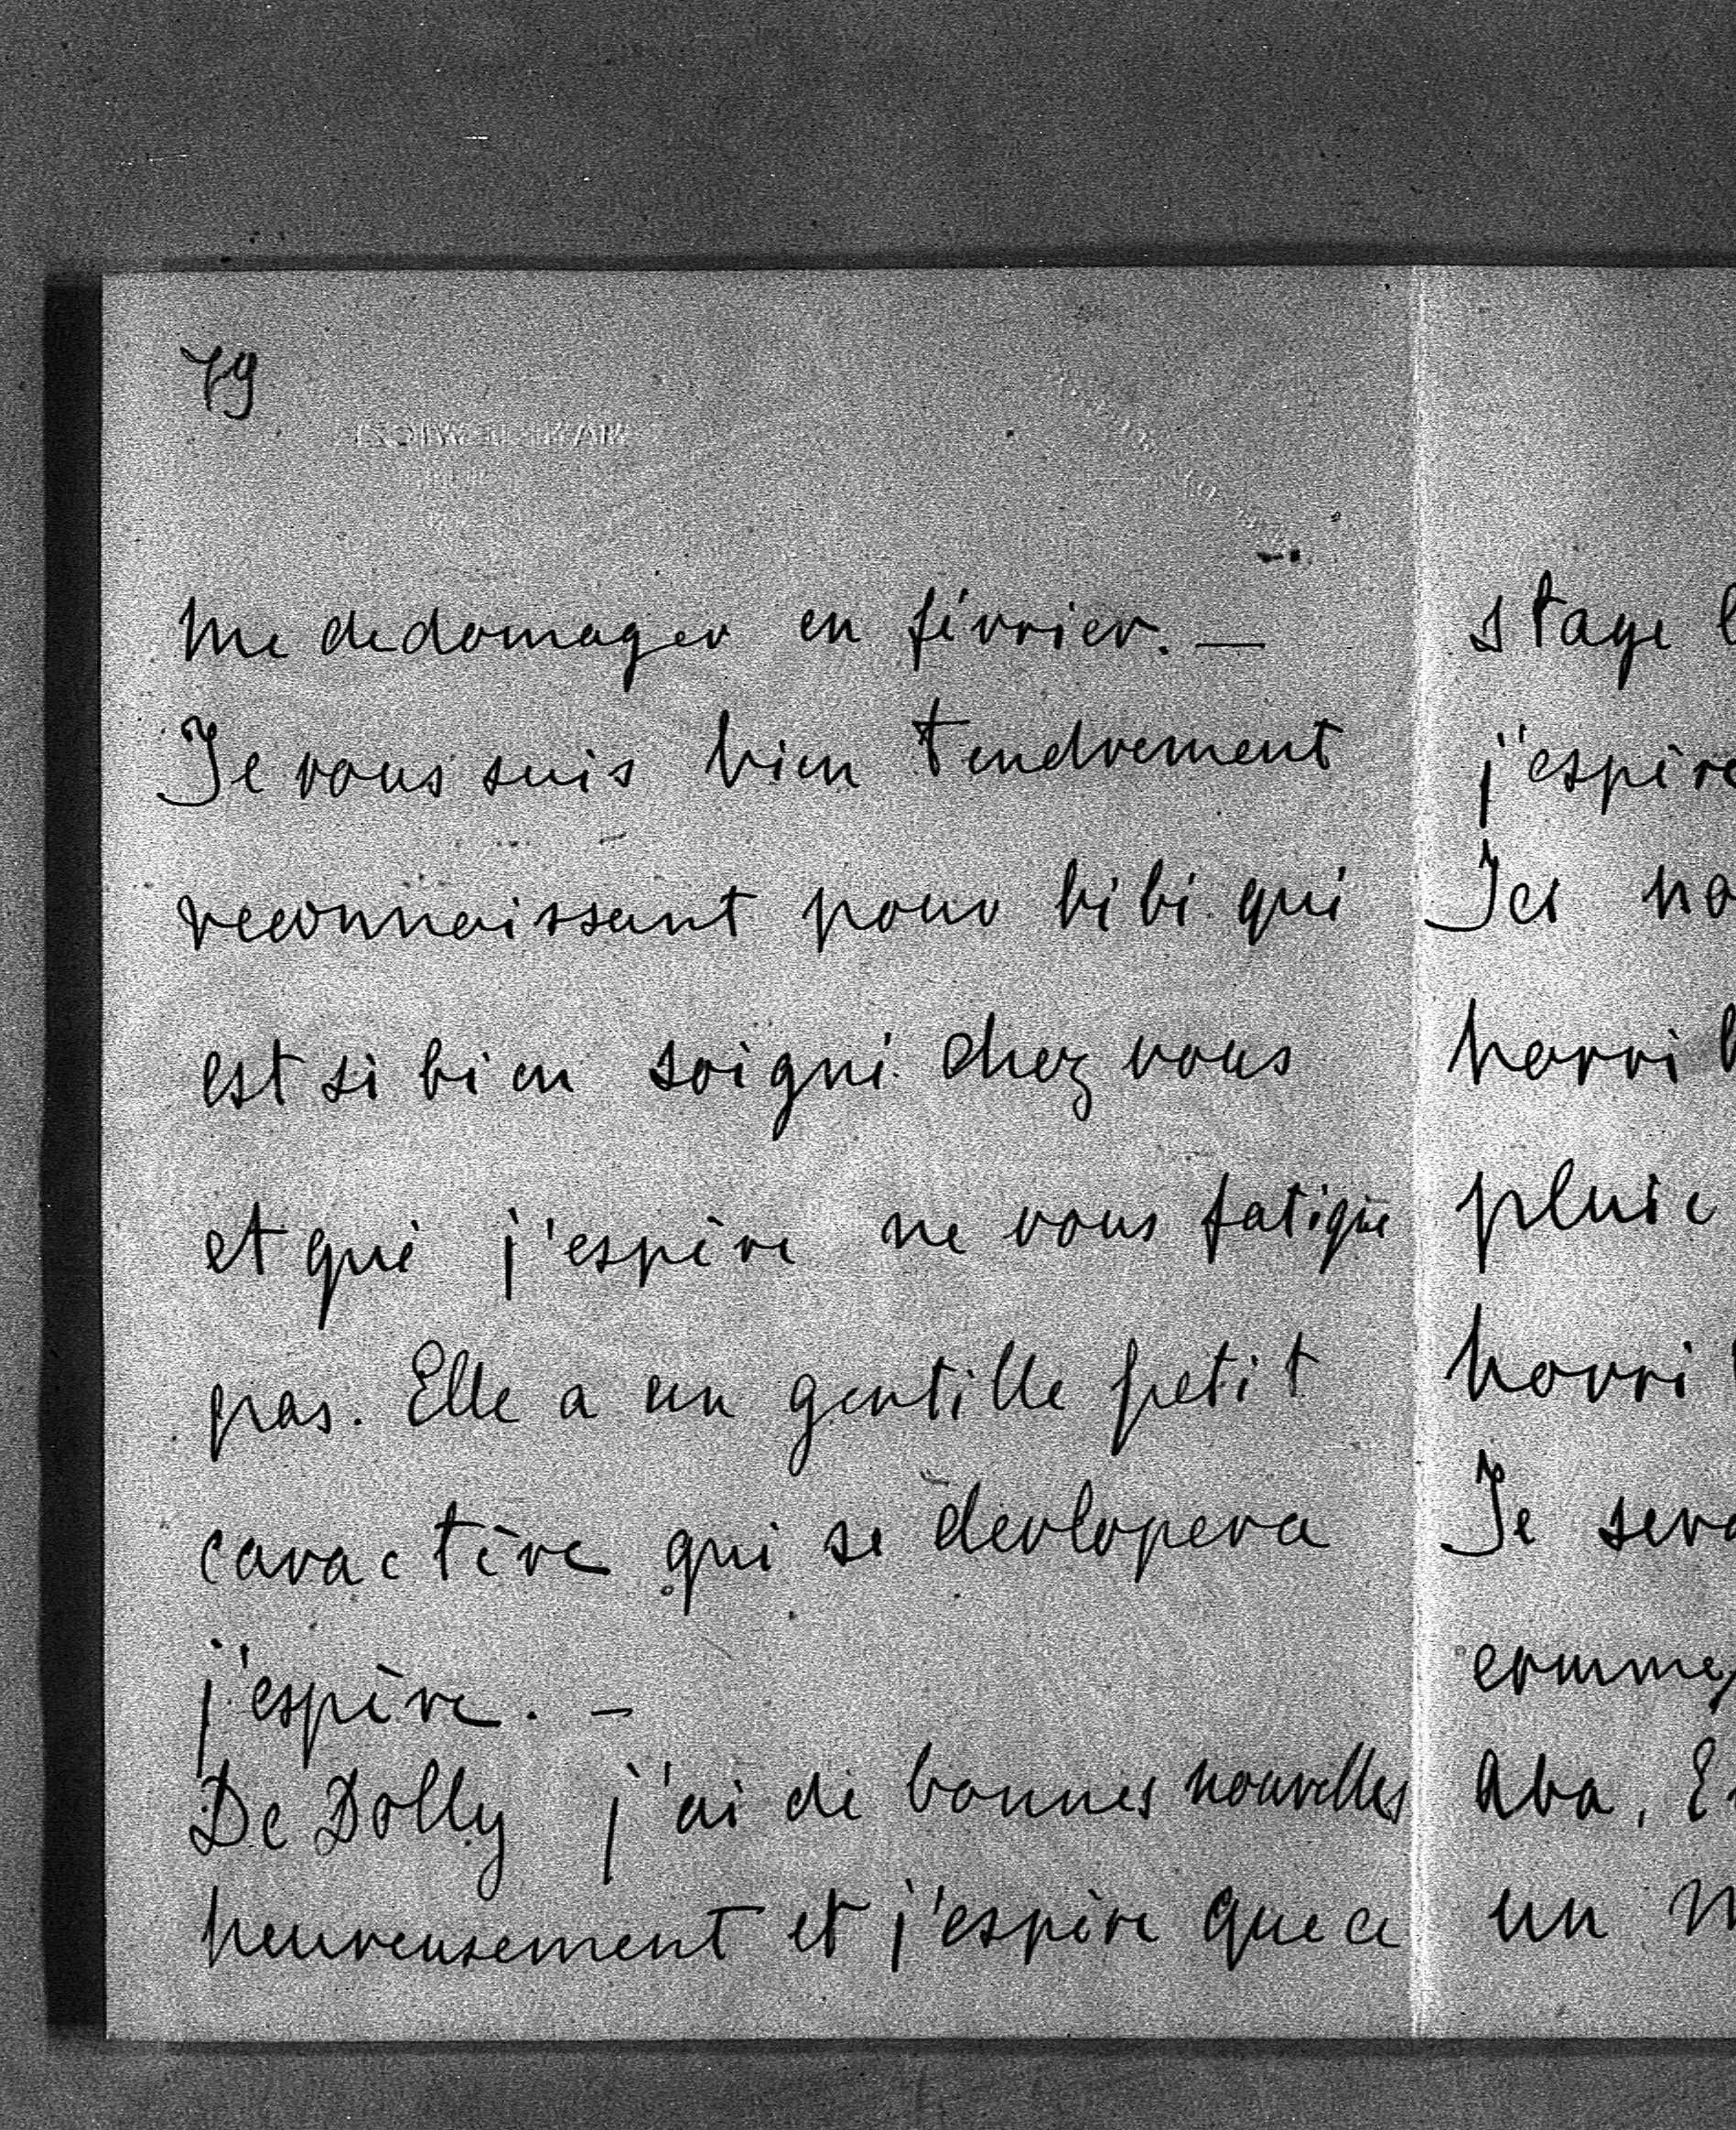 79
me dedomager en février. —
Je vous suis bien tendrement
reconnaissant pour bibi qui
est si bien soigné chez vous
et qui j'espère ne vous fatigue
pas. Elle a un gentille petit
caractère qui se devlopera
j'espère. —
De Dolly j'ai de bonnes nouvelles
heureusement et j'espère que ce
stage
j'espère
Ici
pluie
Je
Aba.
un